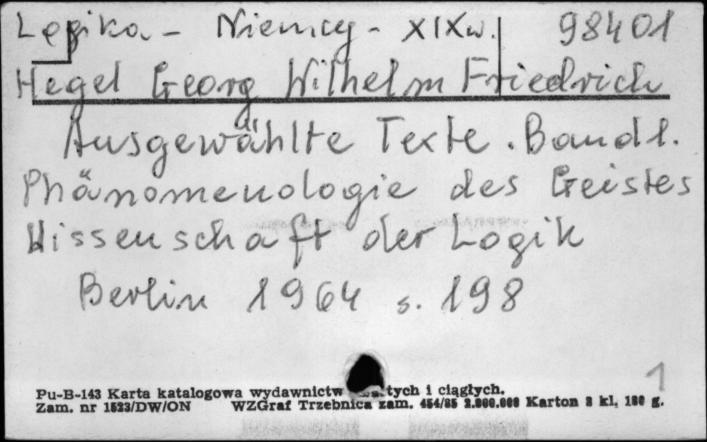 Logika - Niemcy - XIXw. 98401
Hegel Georg Wilhelm Friedrich
Ausgewählte Texte. Band 1.
Phänomenologie des Geistes
Wissenschaft der Logik
Berlin 1964 s. 198
1
Pu-B-143 Karta katalogowa wydawnictw i ciągłych.
Zam. nr 1523/DW/ON WZGraf Trzebnica zam. 454/85 2.000.000 Karton 3 kl. 180 g.